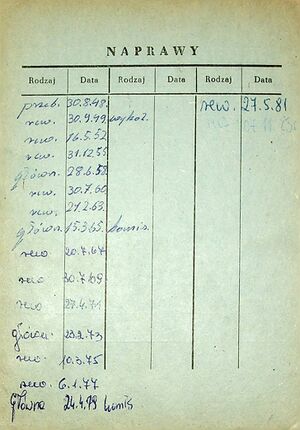 NAPRAWY
Rodzaj Data Rodzaj Data Rodzaj Data
przeb. 30.8.48. rew. 27.5.81
rew. 30.9.49
rew. 16.5.52
rew. 31.12.55
główn. 28.6.58.
rew. 30.7.60
rew. 21.2.63.
główn. 15.3.65. komis.
rew 20.7.67
rew 30.7.69
rew 27.4.71
główn. 23.2.73
rew. 10.3.75
rew. 6.1.77
Główna 24.4.79 komis